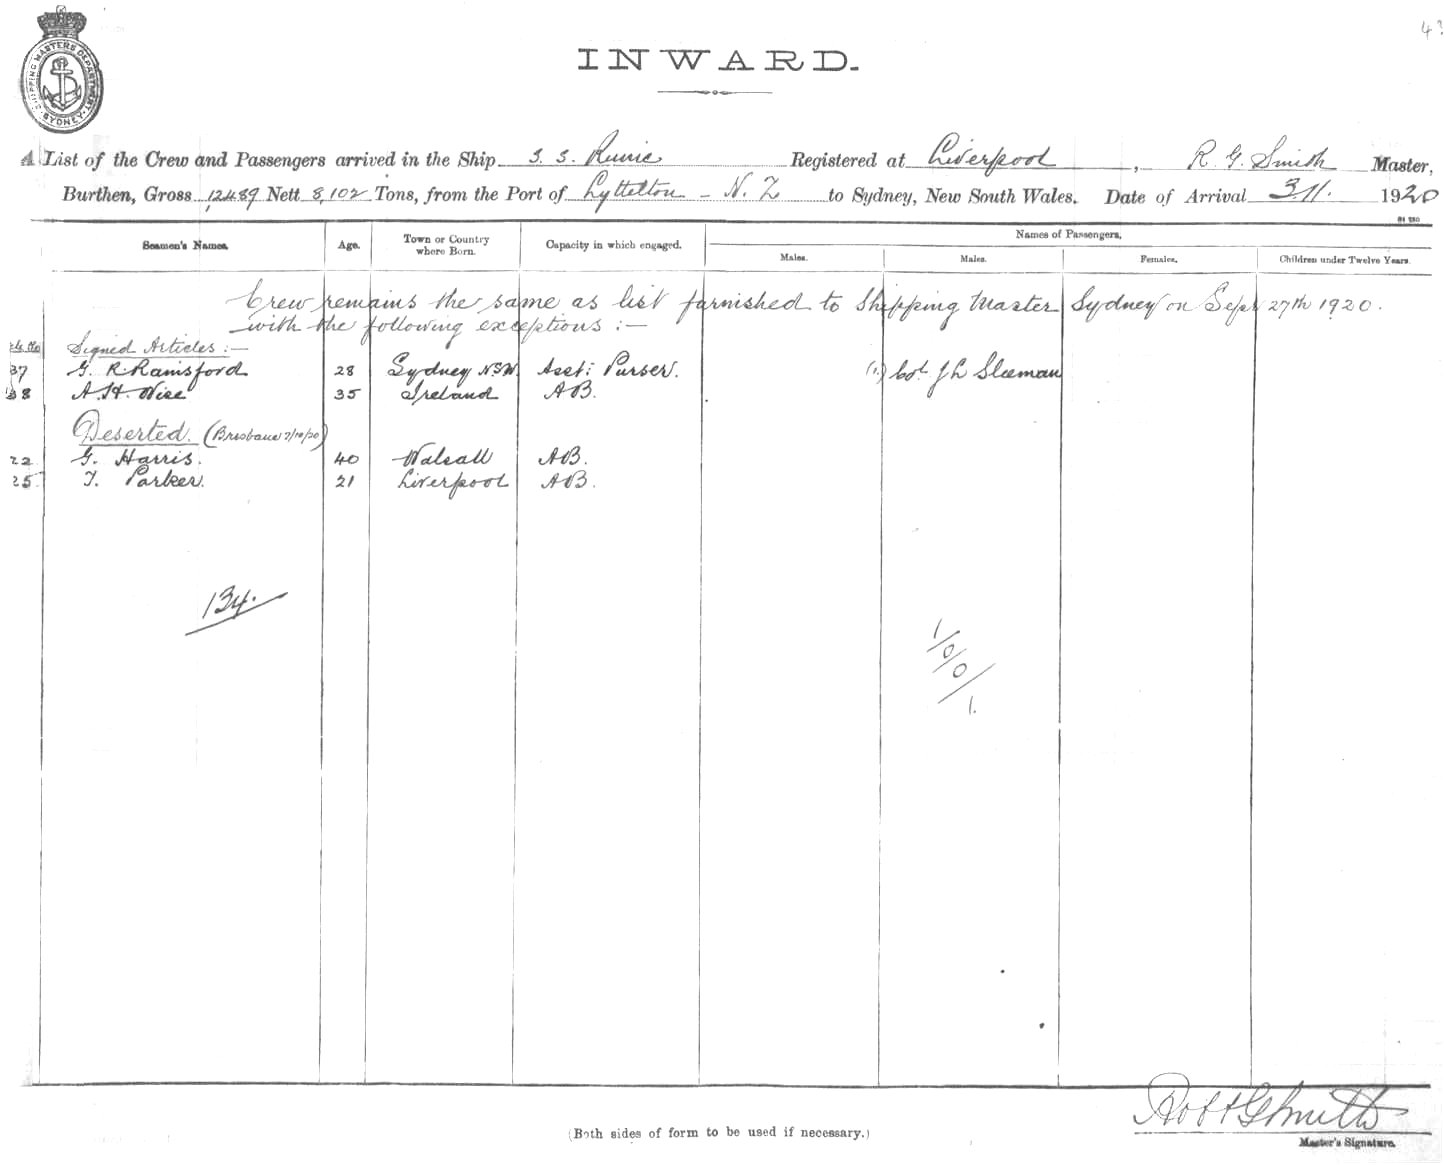 43
SHIPPING MASTERS DEPARTMENT. SYDNEY
INWARD.
A List of the Crew and Passengers arrived in the Ship S. S. Runic Registered at Liverpool, R. G. Smith Master,
Burthen, Gross 12,489 Nett 8,102 Tons, from the Port of Lyttelton - N. Z to Sydney, New South Wales. Date of Arrival 3.11. 1920
Seamen's Names. Age. Town or Country where Born. Capacity in which engaged. Names of Passengers.
Males. Males. Females. Children under Twelve Years.
Crew remains the same as list furnished to Shipping Master Sydney on Sept 27th 1920.
with the following exceptions :—
Signed Articles :—
37 G. R. Rainsford 28 Sydney NSW. Asst: Purser. (1.) Col. J L Sleeman
38 A. H. Wise 35 Ireland AB.
Deserted. (Brisbane 7/10/20)
22 G. Harris. 40 Walsall AB.
25 T. Parker. 21 Liverpool AB.
134.
1/0/0/1.
Robt G Smith
(Both sides of form to be used if necessary.)
Master's Signature.